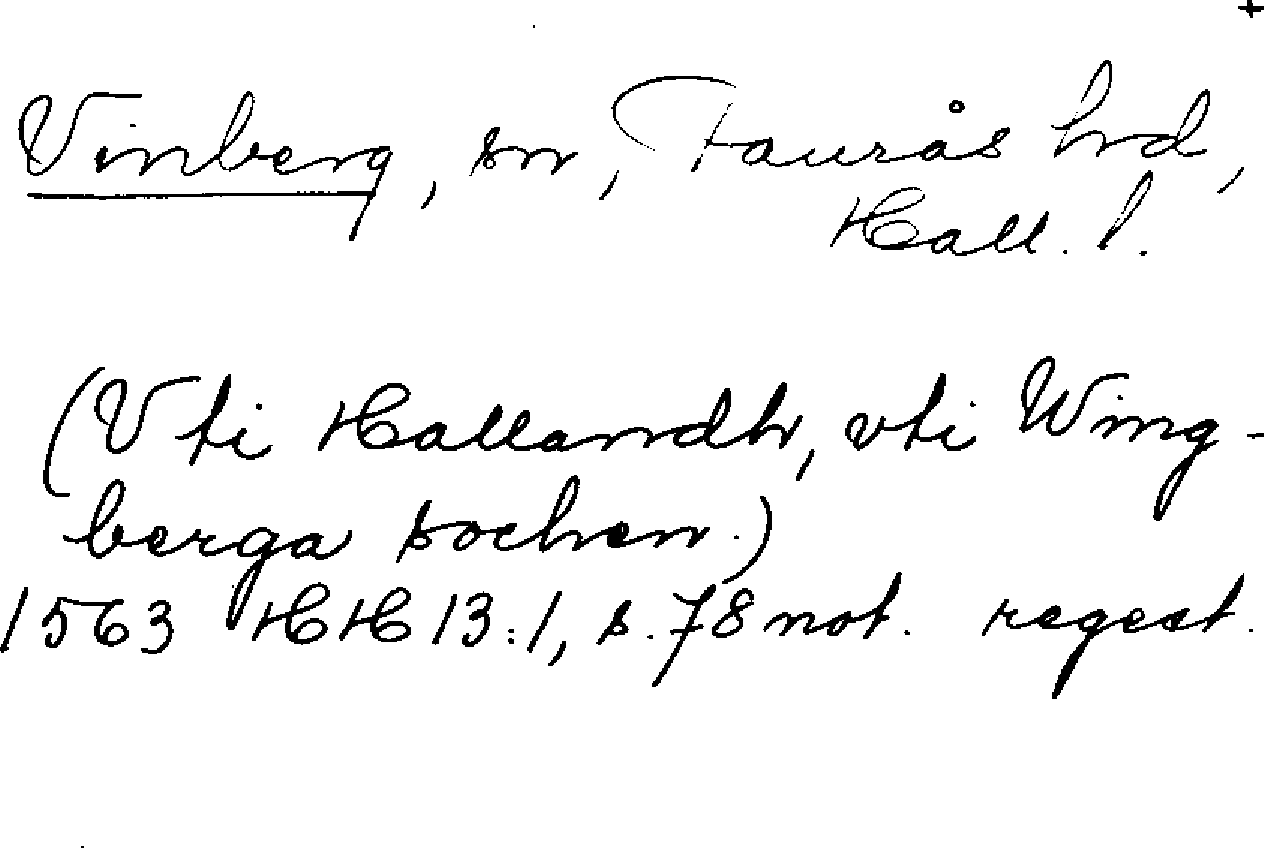 +
Vinberg, sn, Faurås hd,
Hall. l.
(Vti Hallandh, vti Wing-
berga sochen.)
1563 HH 13:1, s. 78 not. regest.